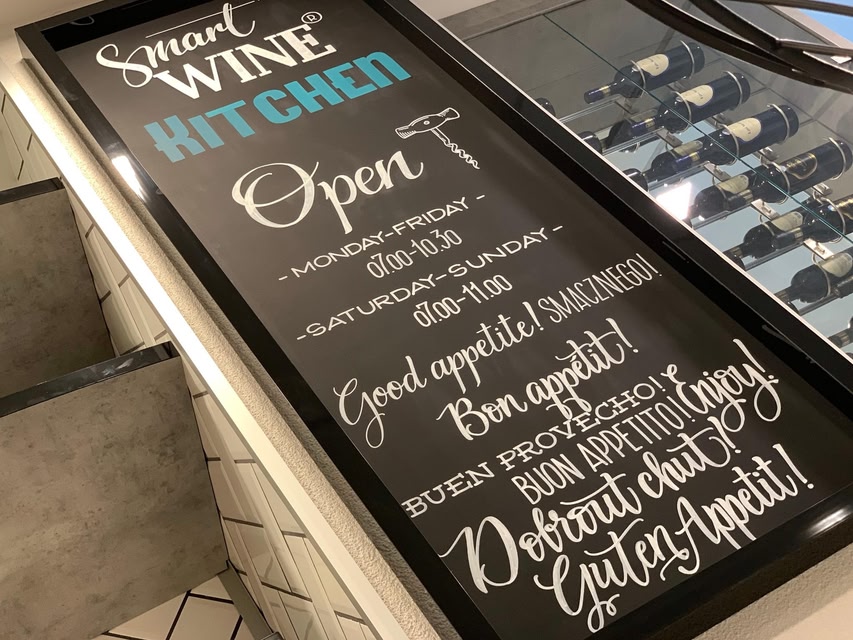 Smart
WINE®
KITCHEN
Open
- MONDAY-FRIDAY -
07.00-10.30
-SATURDAY-SUNDAY-
07.00-11.00
Good appetite! SMACZNEGO!
Bon appétit!
BUEN PROVECHO! Enjoy!
BUON APPETITO!
Dobrout chut!
Guten Appetit!